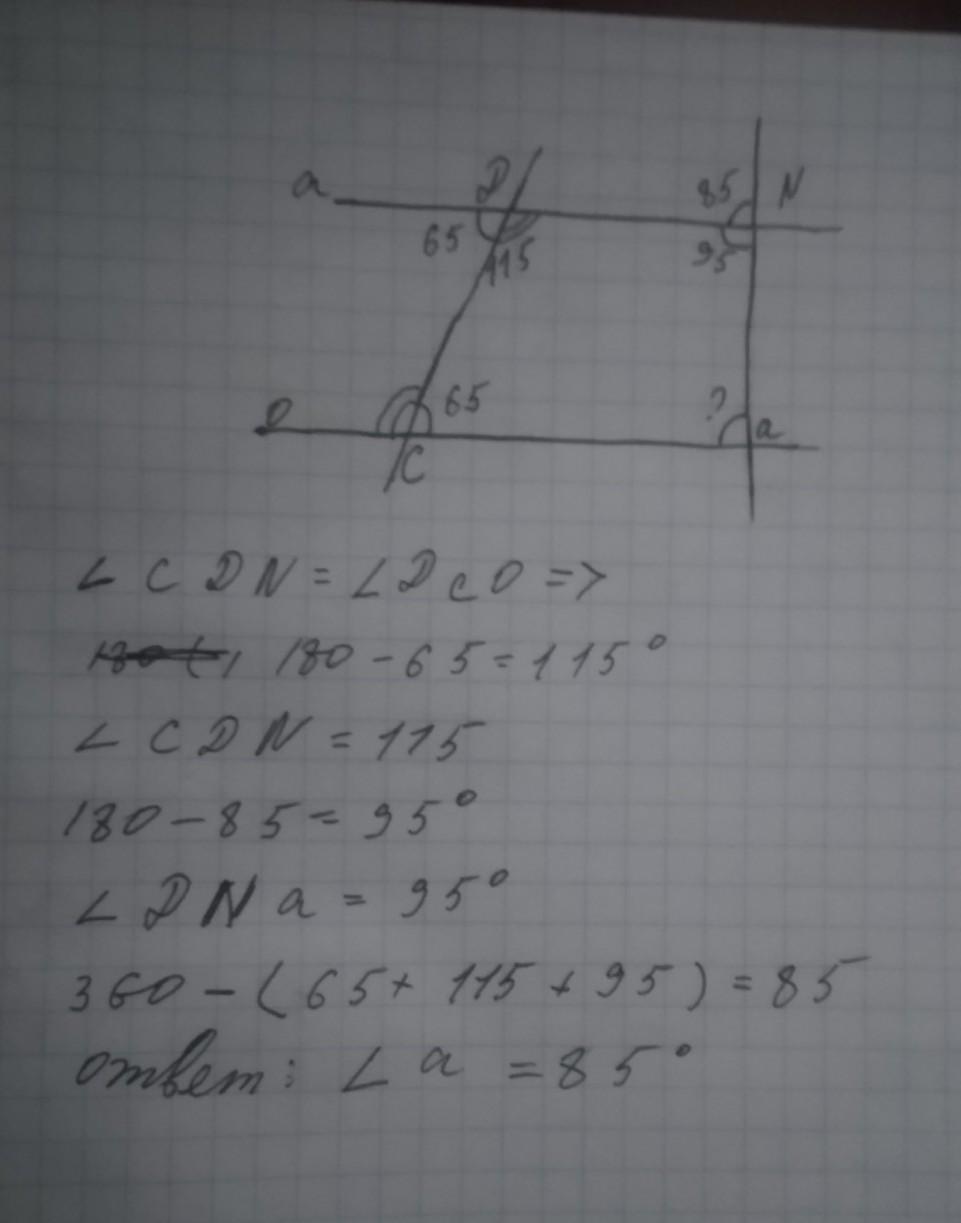 a D 85 N
65 115 95
O 65 ? a
C
∠ CDN = ∠DcO =>
180 - 65 = 115°
∠ CDN = 115
180 - 85 = 95°
∠ DNa = 95°
360 - (65 + 115 + 95) = 85
ответ: ∠ a = 85°